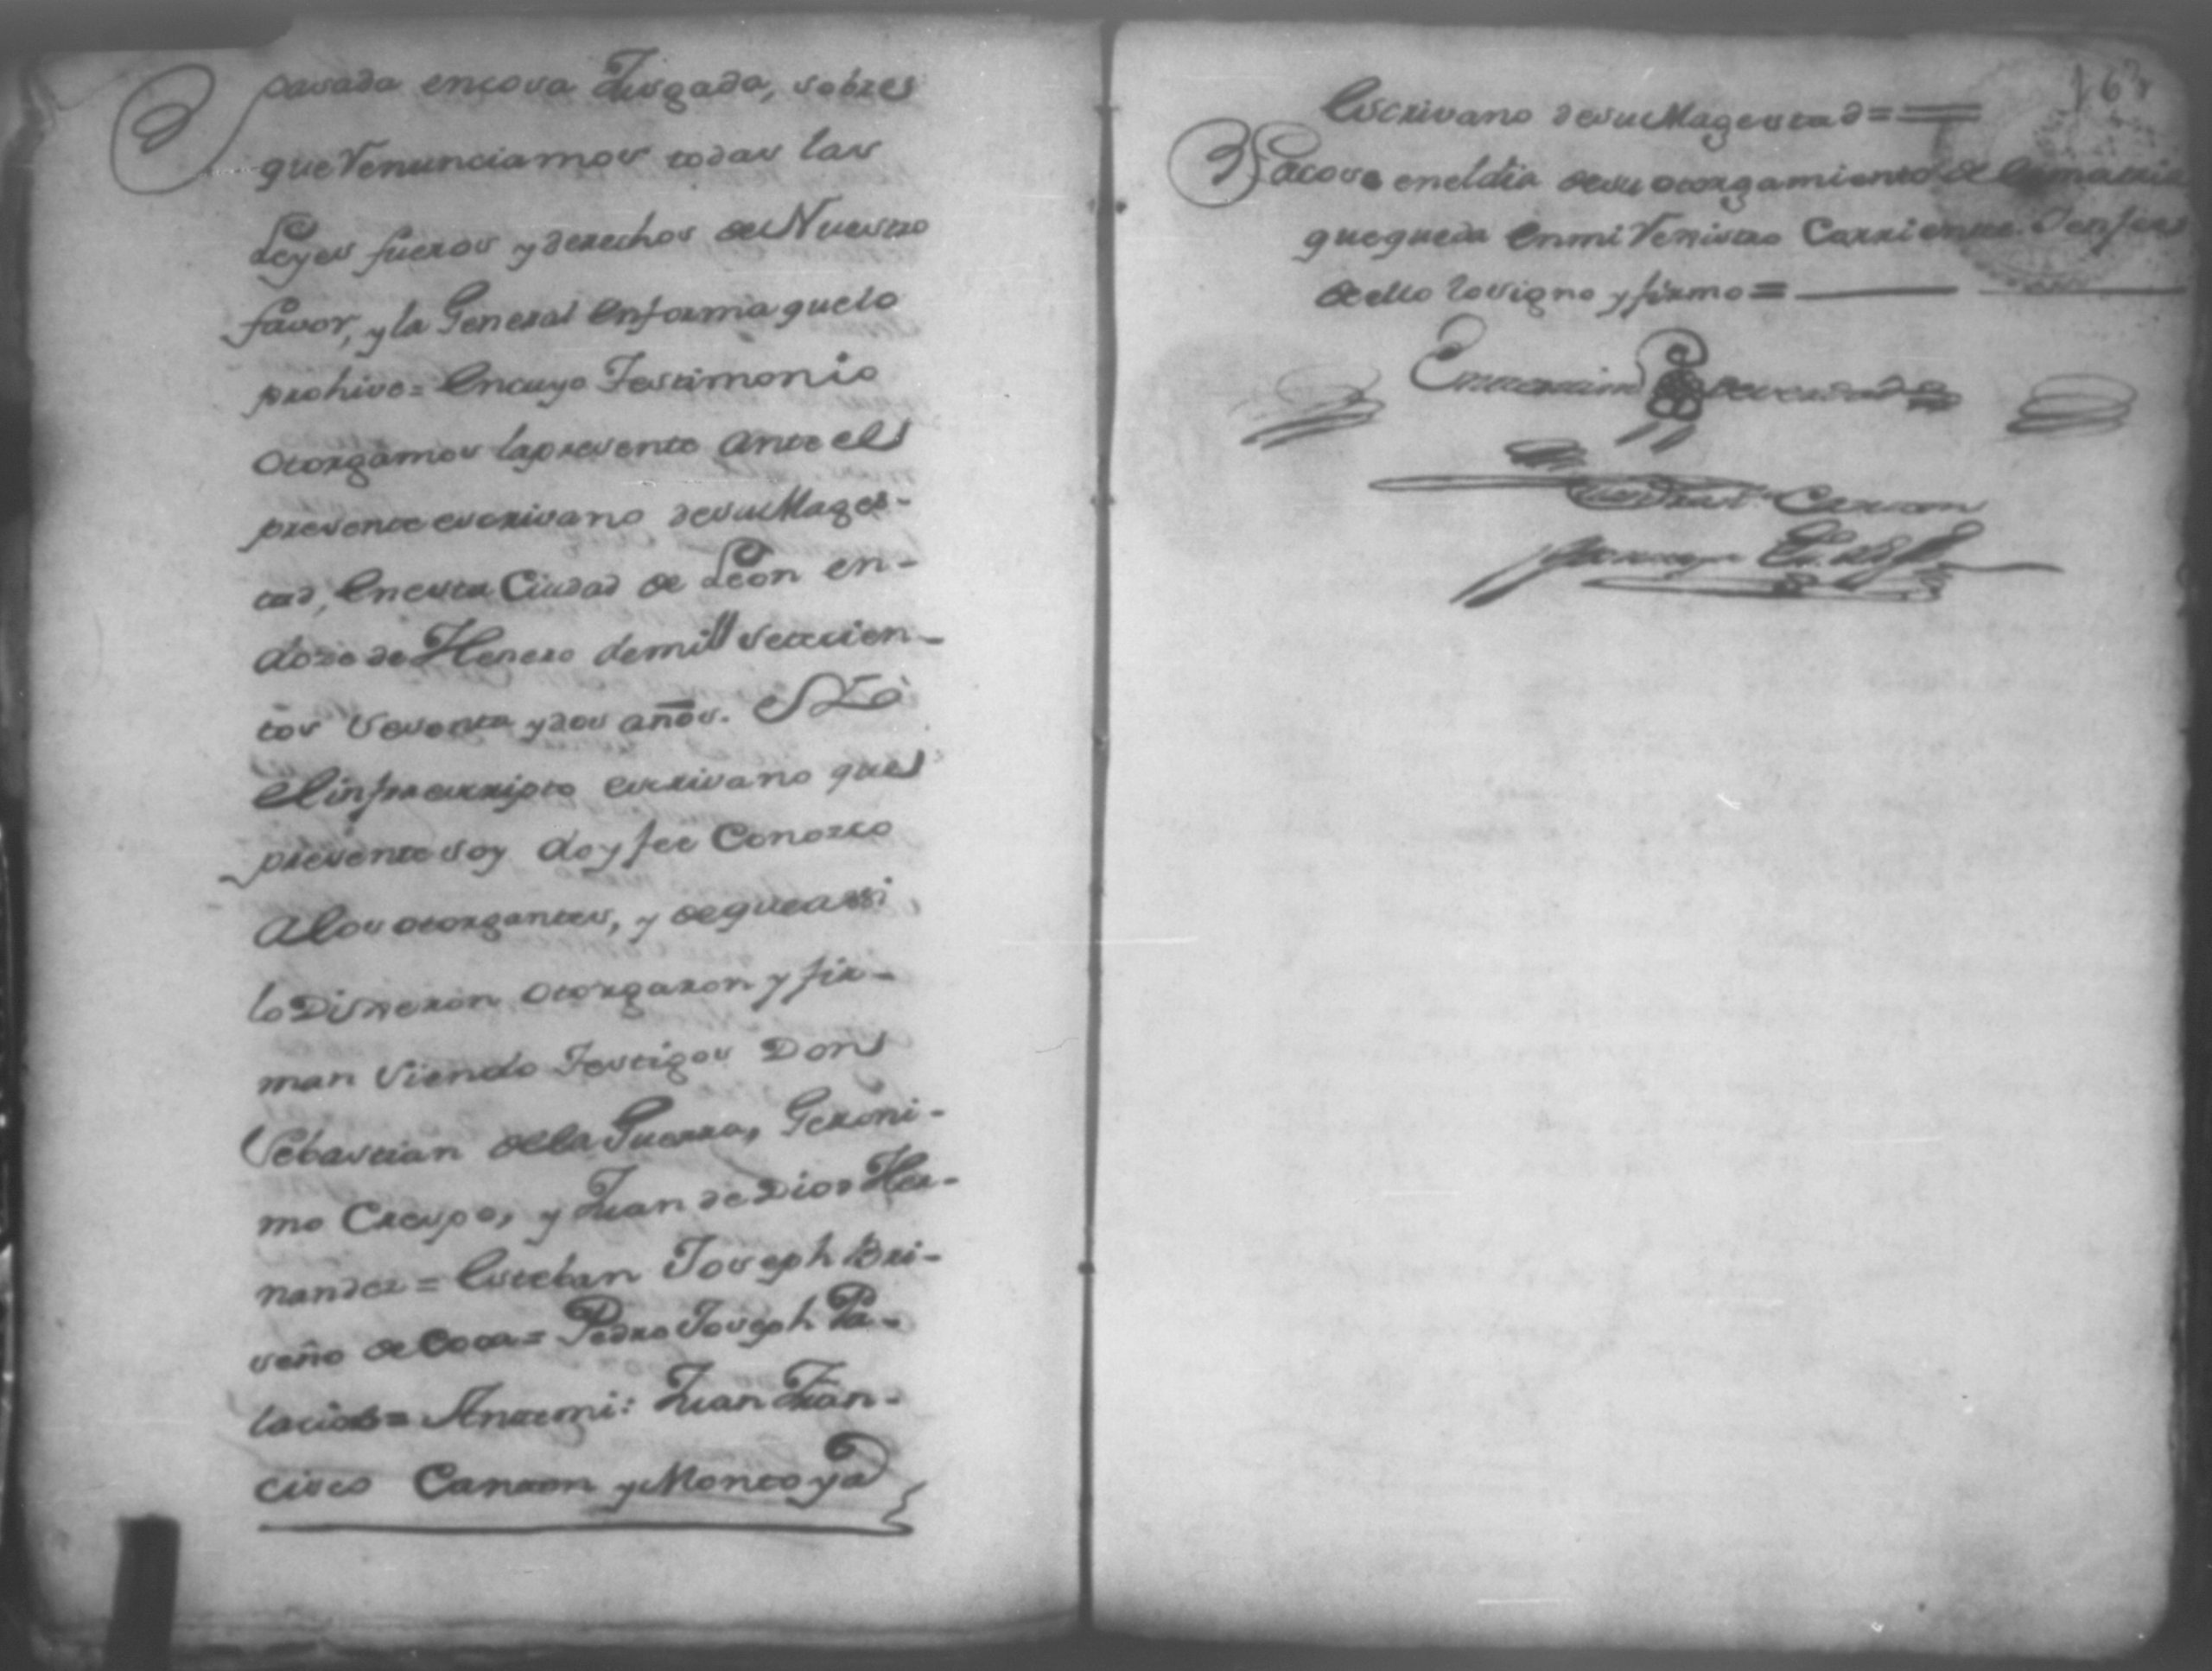 pasada en cosa Jusgada, sobre
que Renunciamos todas las
Leyes fueros y derechos de Nuestro
favor, y la General en forma que lo
prohive = En cuyo Testimonio
otorgamos la presente ante el
presente escrivano de su Mages-
tad, En esta Ciudad de Leon en
doze de Henero de mill setecien-
tos sesenta y dos años. E Yo
el infraescripto escrivano que
presente soy doy fee Conozco
a los otorgantes, y de que assi
lo Dixeron otorgaron y fir-
man siendo Testigos Don
Sebastian de la Guerra, Geroni-
mo Crespo, y Juan de Dios Her-
nandez = Esteban Joseph Bri-
seño de Coca = Pedro Joseph Pa-
lacios = Ante mi: Juan Fran-
cisco Carrion y Montoya
163
Escrivano de su Magestad =
Sacose en el dia de su otorgamiento de
que queda en mi Registro Corriente. Y en fee
de ello lo signo y firmo =
En testimonio de verdad
Juan Fran.co Carrion
y Montoya